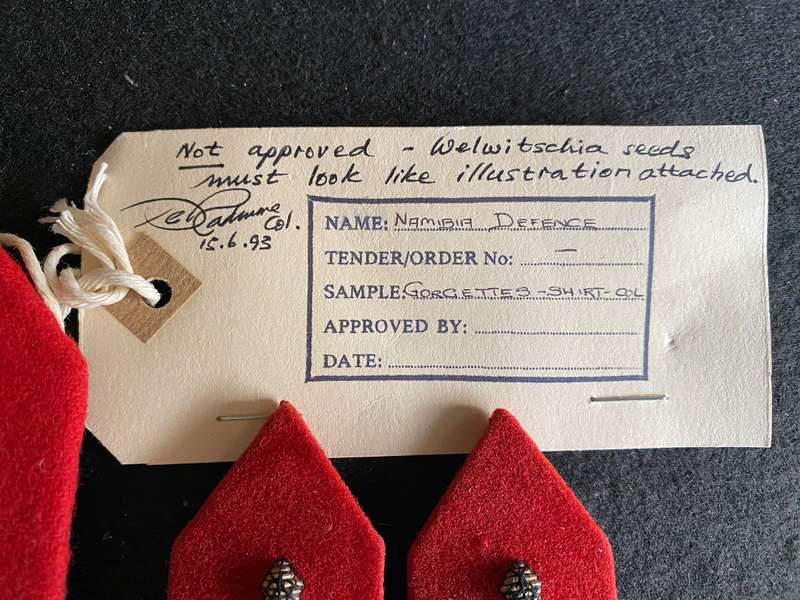 Not approved - Welwitschia seeds
must look like illustration attached.
Col.
15.6.93
NAME: NAMIBIA DEFENCE
TENDER/ORDER No: —
SAMPLE: GORGETTES-SHIRT-COL
APPROVED BY:
DATE: